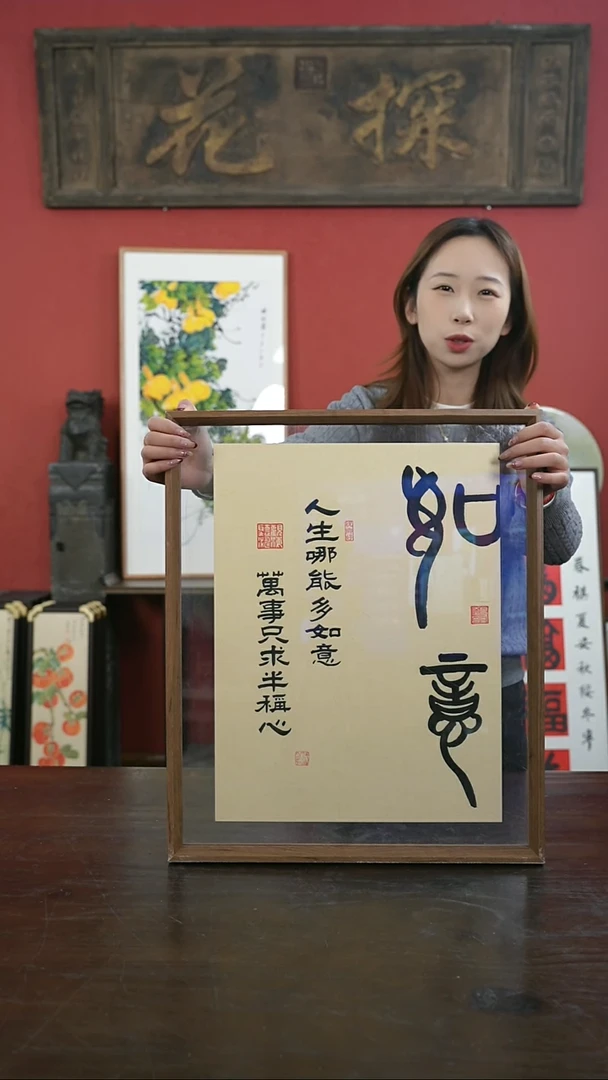 探花
如意
人生哪能多如意
萬事只求半稱心
春祺夏安秋綏冬寧
福